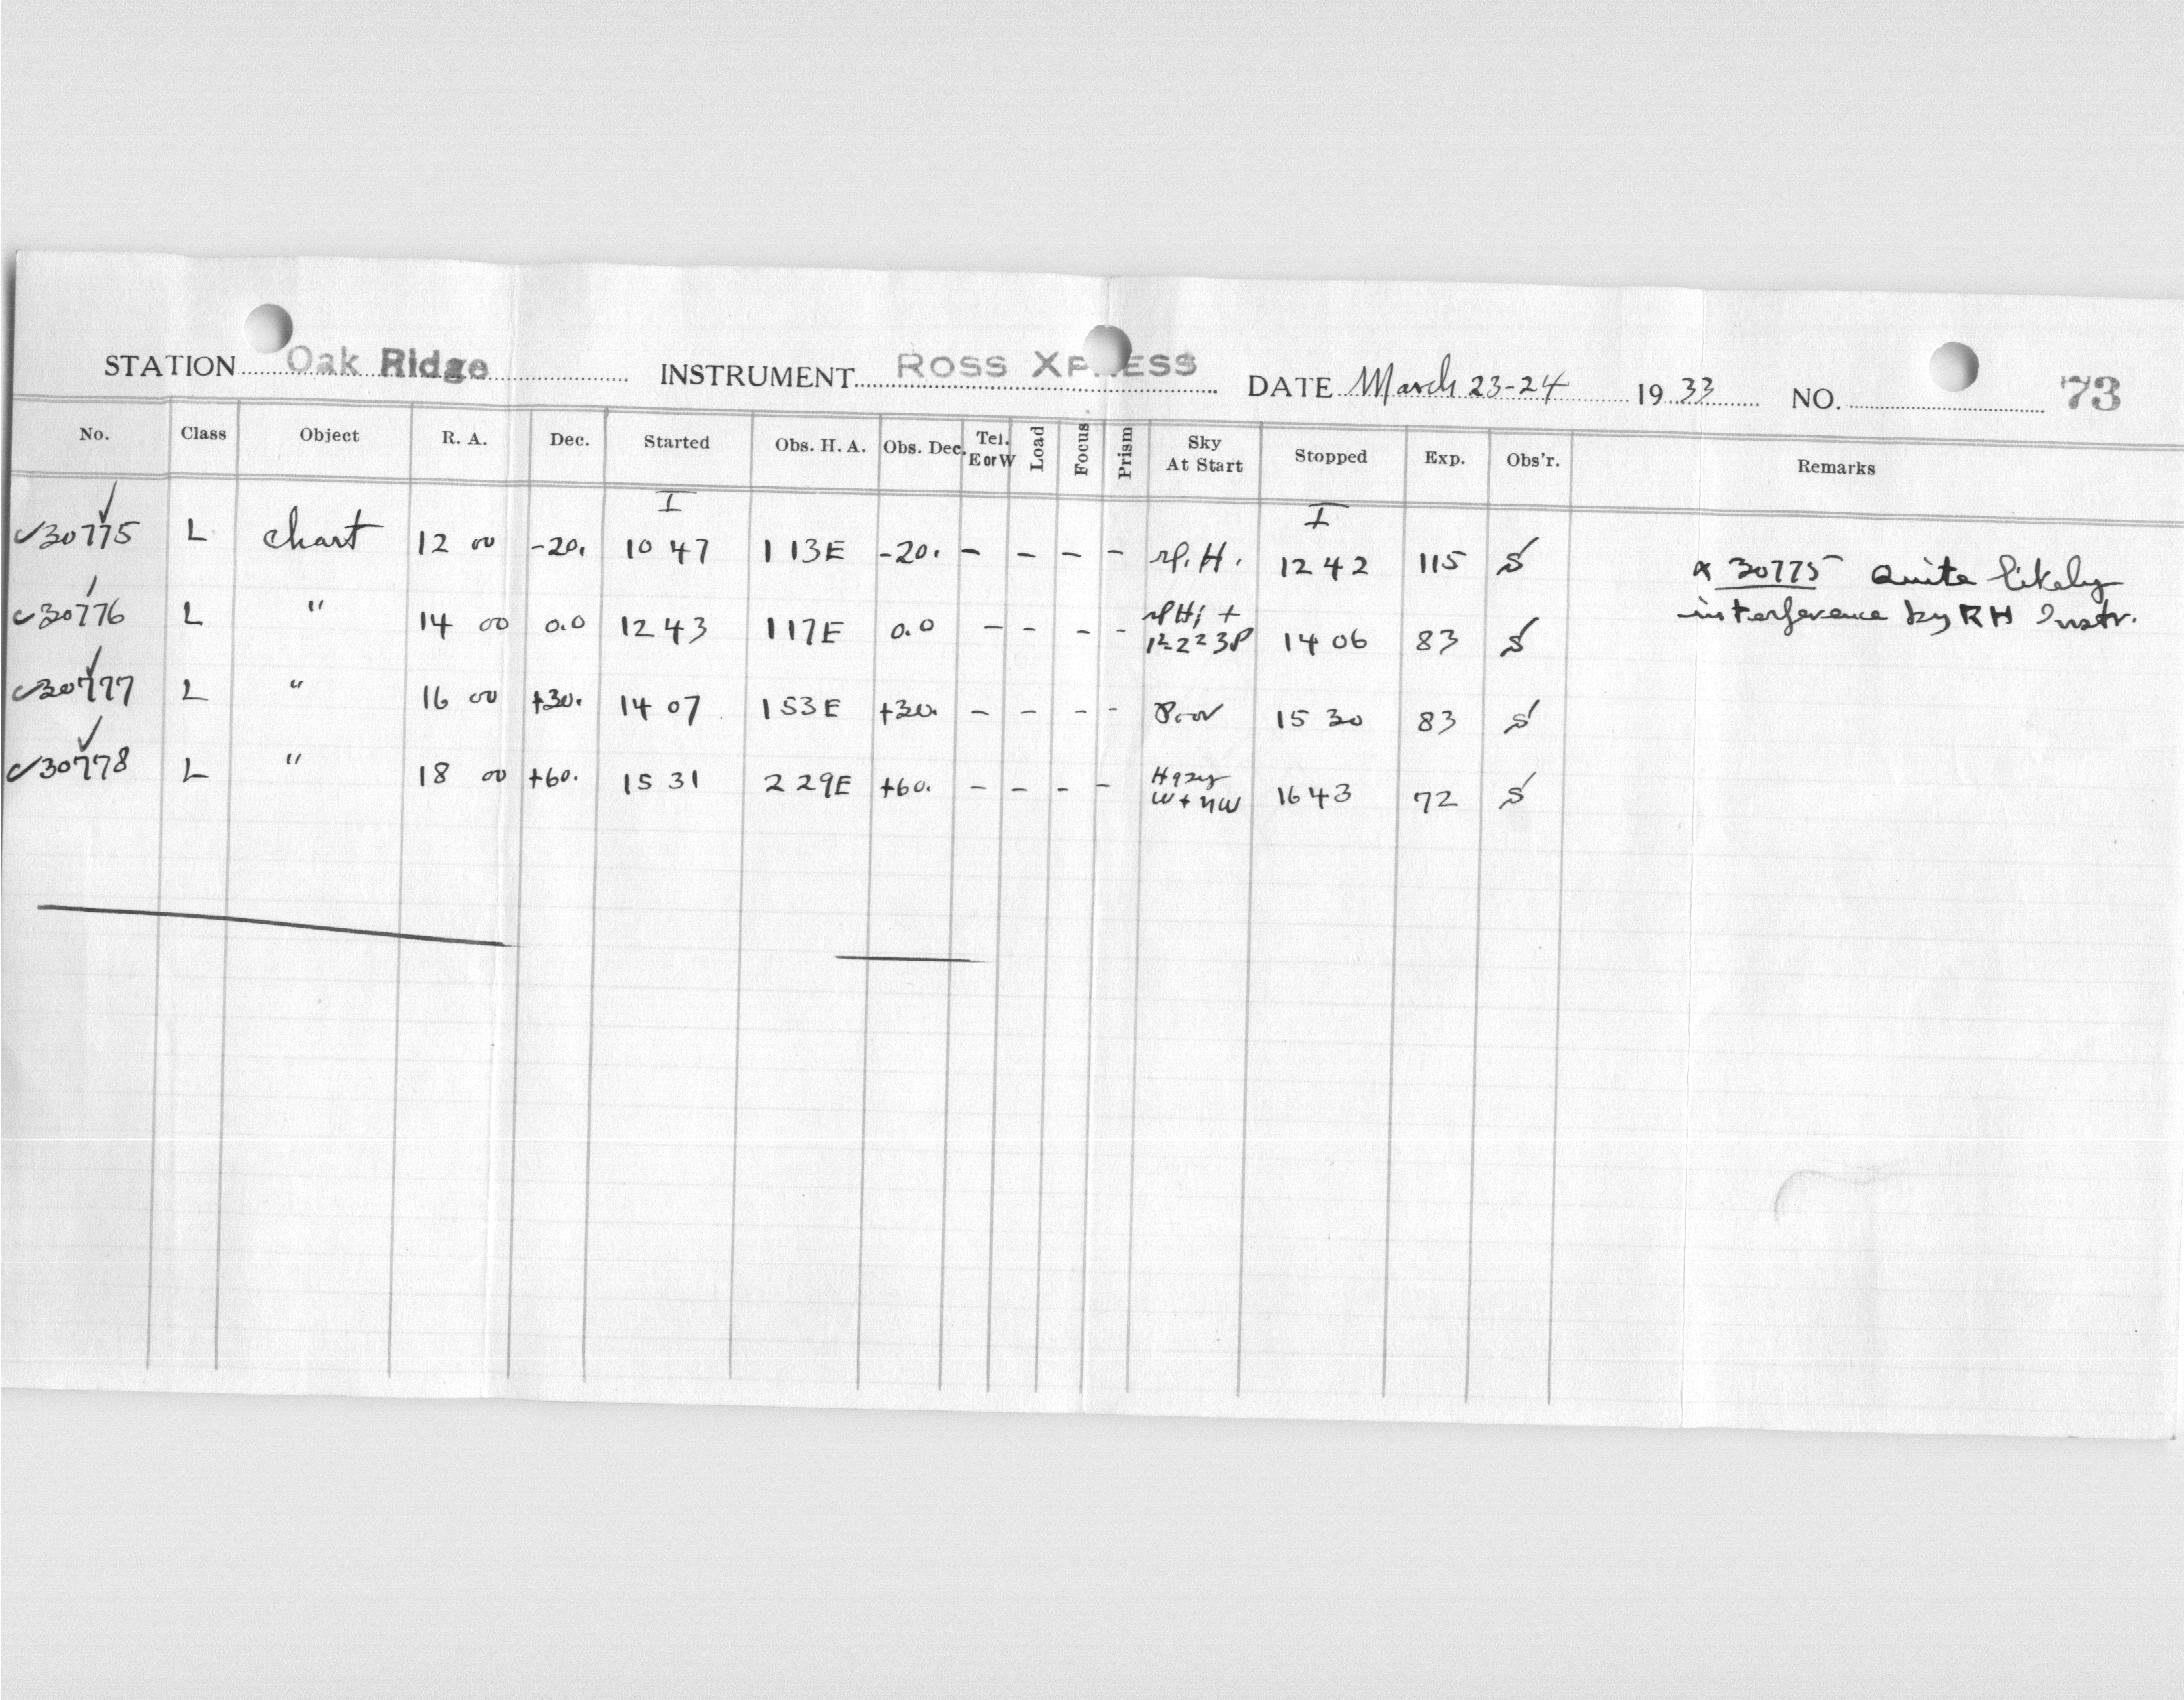 STATION Oak Ridge INSTRUMENT ROSS XP ESS DATE March 23-24 19 33 NO. 73
No. Class Object R. A. Dec. Started Obs. H. A. Obs. Dec. Tel. E or W Load Focus Prism Sky At Start Stopped Exp. Obs'r. Remarks
I I
c30775 L chart 12 00 -20. 10 47 1 13E -20. - - - - H. 12 42 115 S
c30776 L " 14 00 0.0 12 43 1 17E 0.0 - - - - 14 06 83 S
c30777 L " 16 00 +30. 14 07 1 53E +30. - - - - Poor 15 30 83 S
c30778 L " 18 00 +60. 15 31 2 29E +60. - - - - Hazy W + NW 16 43 72 S
30775 Quite likely
interference by RH Instr.